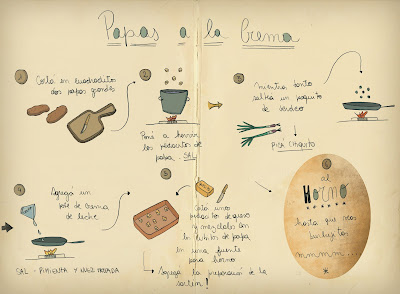 Papas a la Crema
1
Corta en cuadraditos
dos papas grandes
2
Poné a hervir
los pedacitos de
papa. SAL
3
Mientras tanto
saltea un poquito
de verdeo
PICA CHIQUITO
4
Agrega un
pote de crema
de leche
SAL - PIMIENTA Y NUEZ MOSCADA
5
Corta unos
pedacitos de queso
y mezclalos con
los cubitos de papa
en una fuente
para horno
Agrega la preparación de la
sartén!
6
al
HORNO
hasta que veas
burbujitas
mmmm...